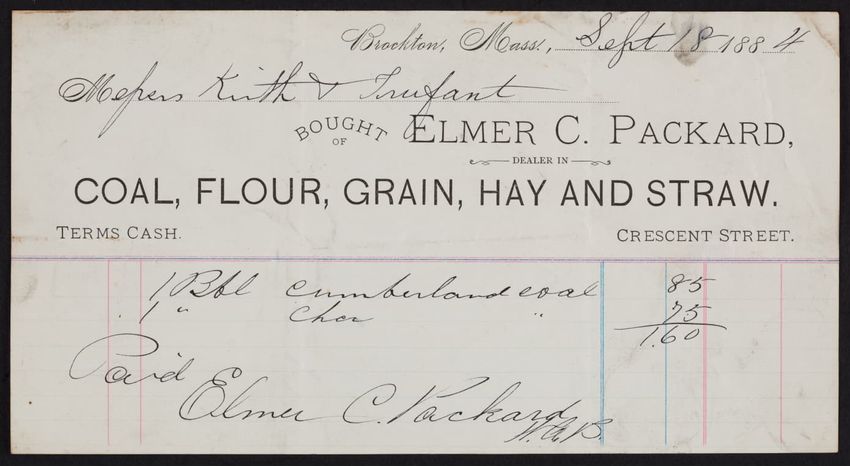 Brockton, Mass., Sept 18 1884
Messrs Keith & Trufant
BOUGHT OF ELMER C. PACKARD,
DEALER IN
COAL, FLOUR, GRAIN, HAY AND STRAW.
TERMS CASH. CRESCENT STREET.
1 Bbl Cumberland coal 85
1 " Char " 75
1.60
Paid
Elmer C. Packard